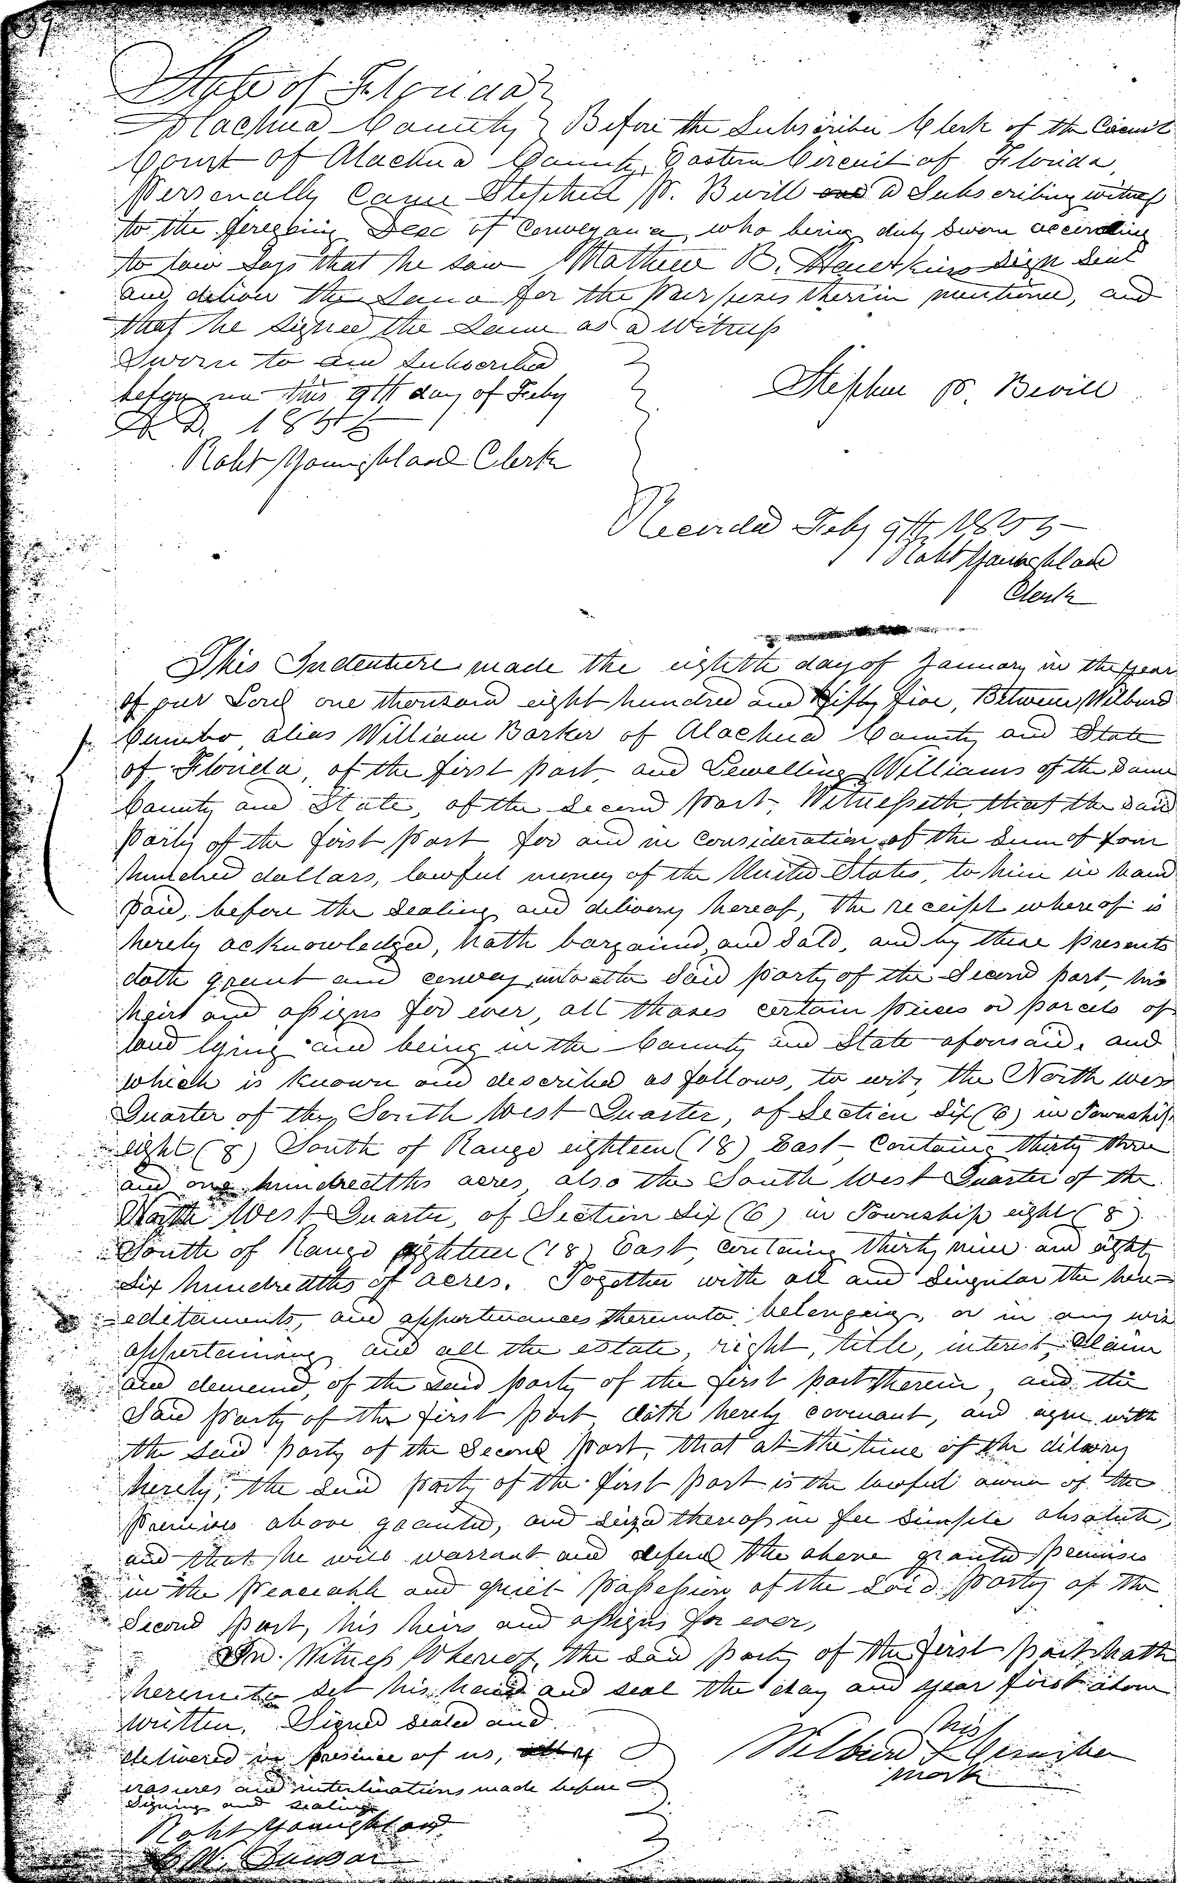 39
State of Florida
Alachua County Before the Subscriber Clerk of the Circuit
Court of Alachua County, Eastern Circuit of Florida,
personally came Stephen P. Bevill a Subscribing witness
to the foregoing Deed of Conveyance, who being duly sworn according
to law Says that he saw Mathew B. Hawkins sign Seal
and deliver the Same for the purposes therein mentioned, and
that he signed the same as a witness
Sworn to and subscribed
before me this 9th day of Feby
A. D. 1855
Robt Youngblood Clerk
Stephen P. Bevill
Recorded Feby 9th 1855
Robt Youngblood
Clerk
This Indenture made the eighth day of January in the year
of our Lord one thousand eight hundred and fifty five, Between Wilburd
Cumbo, alias William Barker of Alachua County and State
of Florida, of the first part, and Lewelling Williams of the Same
County and State, of the Second part, Witnesseth, that the said
party of the first part for and in consideration of the Sum of four
hundred dollars, lawful money of the United States, to him in hand
paid, before the Sealing and delivery hereof, the receipt whereof is
hereby acknowledged, hath bargained, and Sold, and by these presents
doth grant and convey unto the Said party of the Second part, his
heirs and assigns for ever, all thoses certain pieces or parcels of
land lying and being in the County and State aforesaid, and
which is known and described as follows, to wit, the North west
Quarter of the South West Quarter, of Section Six (6) in Township
eight (8) South of Range eighteen (18) East, Containg thirty three
and one hundredths acres, also the South West Quarter of the
North West Quarter, of Section Six (6) in Township eight (8)
South of Range eighteen (18) East, containg thirty nine and eighty
six hundredths of acres. Together with all and Singular the her=
=editaments, and appurtenances thereunto belonging, or in any wise
appertaining and all the estate, right, title, interest, claim
and demand, of the said party of the first part therein, and the
Said party of the first part, doth hereby covenant, and agree with
the said party of the Second part, that at the time of the delivery
hereby, the said party of the first part is the lawful owner of the
premises above granted, and seized thereof in fee Simple absolute,
and that he will warrant and defend the above granted premises
in the Peaceable and quiet possession of the said party of the
Second part, his heirs and assigns for ever,
In Witness Whereof, the said party of the first part hath
hereunto set his hand and seal the day and year first above
written. Signed sealed and
delivered in presence of us,
erasures and interlinations made before
signing and sealing
Robt Youngblood
his
Wilburd X Cumbo
mark